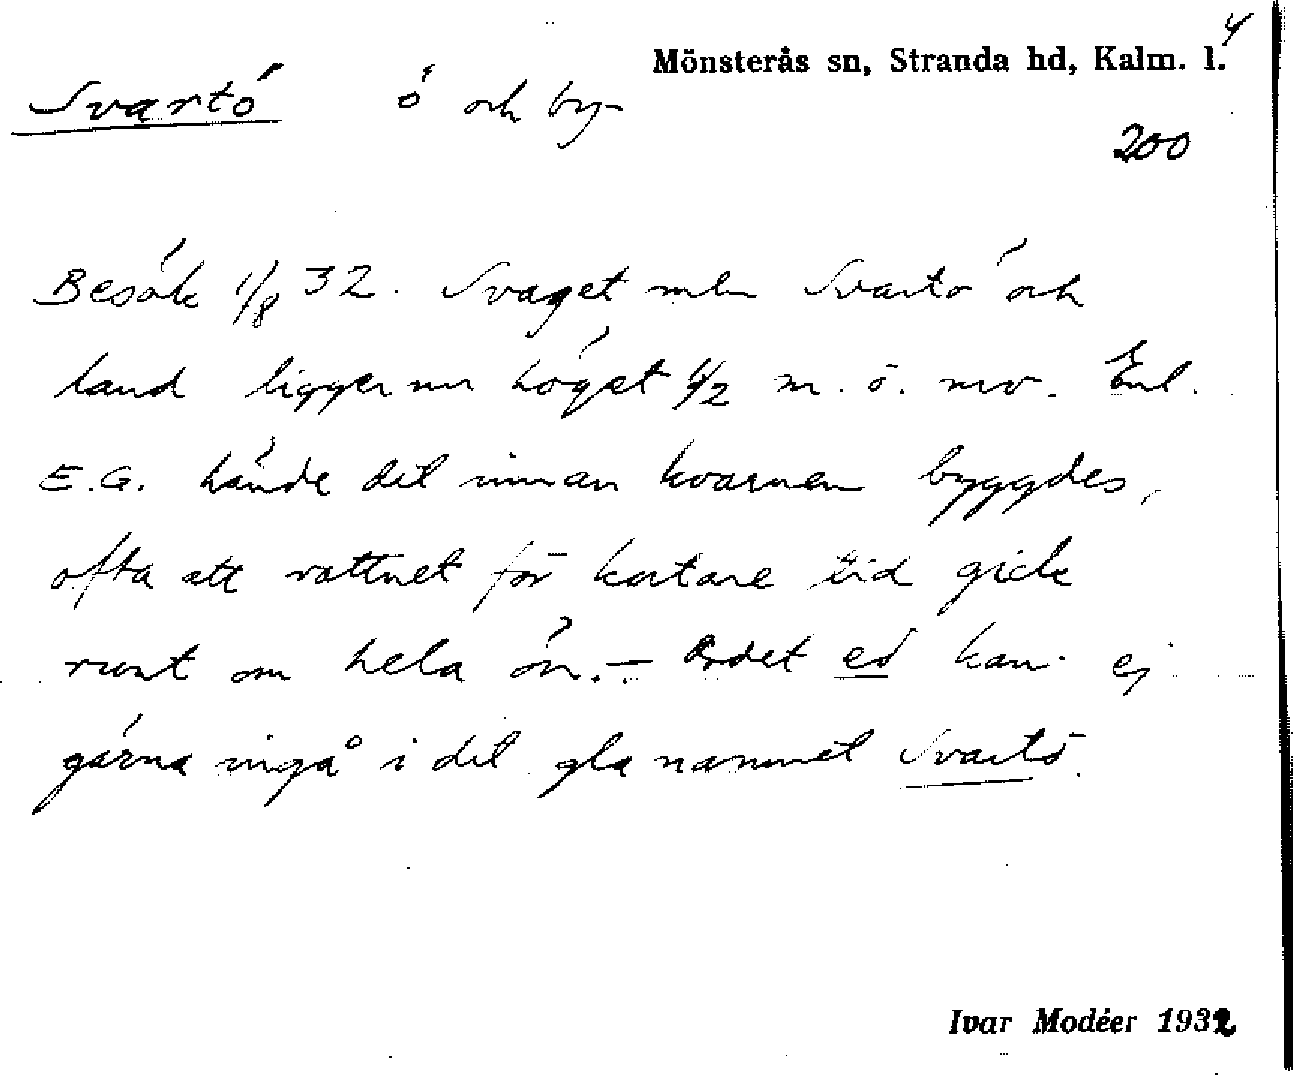 4
Mönsterås sn, Stranda hd, Kalm. l.
Svartö ö och by
200
Besök 1/8 32. Svaget mln Svartö och
land ligger nu högst 1/2 m. ö. mv. Enl.
E.G. hände det innan kvarnen byggdes,
ofta att vattnet för kortare tid gick
runt om hela ön. – Ordet ed kan ej
gärna ingå i det gla namnet Svartö.
Ivar Modéer 1932